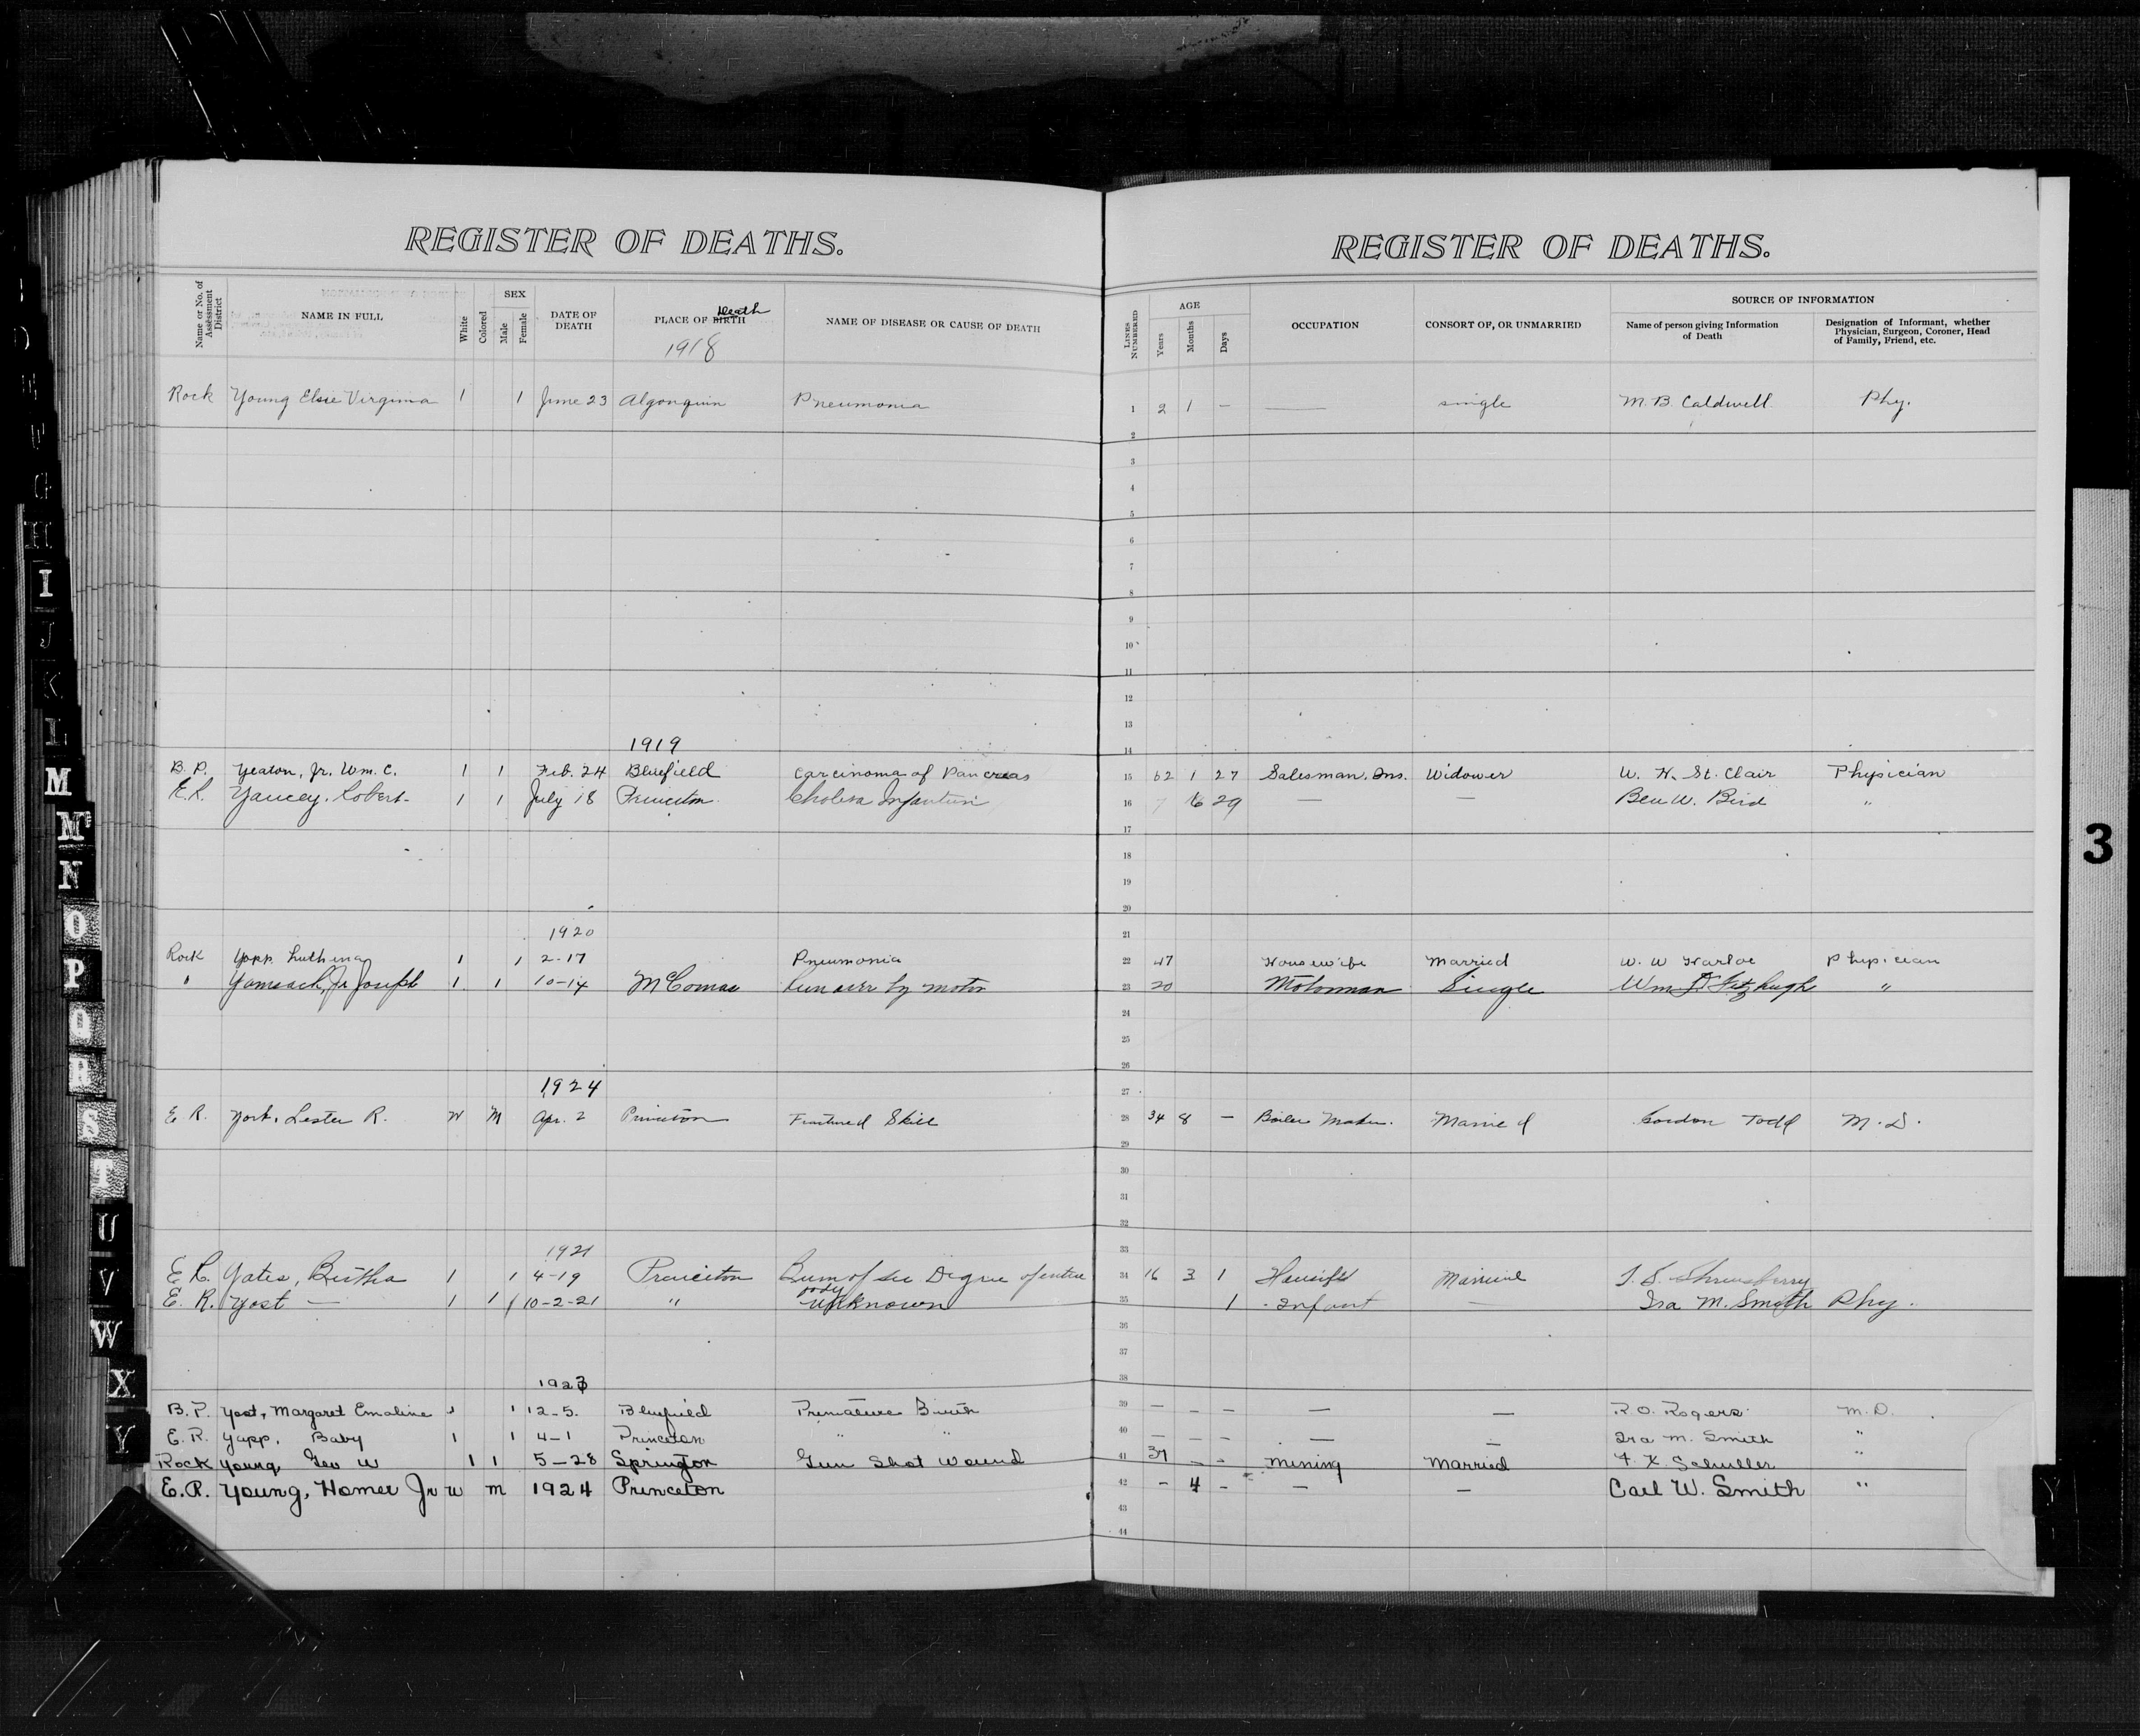 REGISTER OF DEATHS.
REGISTER OF DEATHS.
Name or No. of Assessment District
NAME IN FULL
White
Colored
SEX
Male
Female
DATE OF DEATH
PLACE OF BIRTH Death
1918
NAME OF DISEASE OR CAUSE OF DEATH
LINES NUMBERED
AGE
Years
Months
Days
OCCUPATION
CONSORT OF, OR UNMARRIED
SOURCE OF INFORMATION
Name of person giving Information of Death
Designation of Informant, whether Physician, Surgeon, Coroner, Head of Family, Friend, etc.
Rock Young Elsie Virginia 1 1 June 23 Algonquin Pneumonia 1 2 1 — — single M. B. Caldwell Phy.
2
3
4
5
6
7
8
9
10
11
12
13
1919
14
B. P. Yeaton, Jr. Wm. C. 1 1 Feb. 24 Bluefield Carcinoma of Pancreas 15 62 1 27 Salesman, Ins. Widower W. H. St. Clair Physician
E.R. Yancey, Robert - 1 1 July 18 Princeton Cholera Infantum 16 29 — — Ben W. Bird "
17
18
19
20
1920
21
Rock Yopp 1 1 2-17 Pneumonia 22 47 Housewife Married W. W Harloe Physician
" Jr Joseph 1 1 10-14 McComas Run over by motor 23 20 Motorman Single Wm Fitzhugh "
24
25
26
1924
27
E R. York, Lester R. W M Apr. 2 Princeton Fractured Skull 28 34 8 — Boiler Maker. Married Gordon Todd M. D.
29
30
31
32
1921
33
E R. Yates, Bertha 1 1 4-19 Princeton Burn of Degree of entire body 34 16 3 1 Married Shrewsberry
E. R. Yost — 1 1 10-2-21 " unknown 35 1 Infant — Ira M. Smith Phy.
36
37
1923
38
B. P. Yost, Margaret Emaline 1 1 12-5. Bluefield Premature Birth 39 — — — — — R. O. Rogers M. D.
E. R. Yapp, Baby 1 1 4-1 Princeton " " 40 — — — — — Ira M. Smith "
Rock Young, Geo W 1 1 5-28 Springton Gun Shot Wound 41 37 — — Mining Married "
E. R. Young, Homer Jr W M 1924 Princeton 42 - 4 - — — Carl W. Smith "
43
44
I
J
K
L
M
Mc
N
O
P
Q
R
S
T
U
V
W
X
Y
3
Y